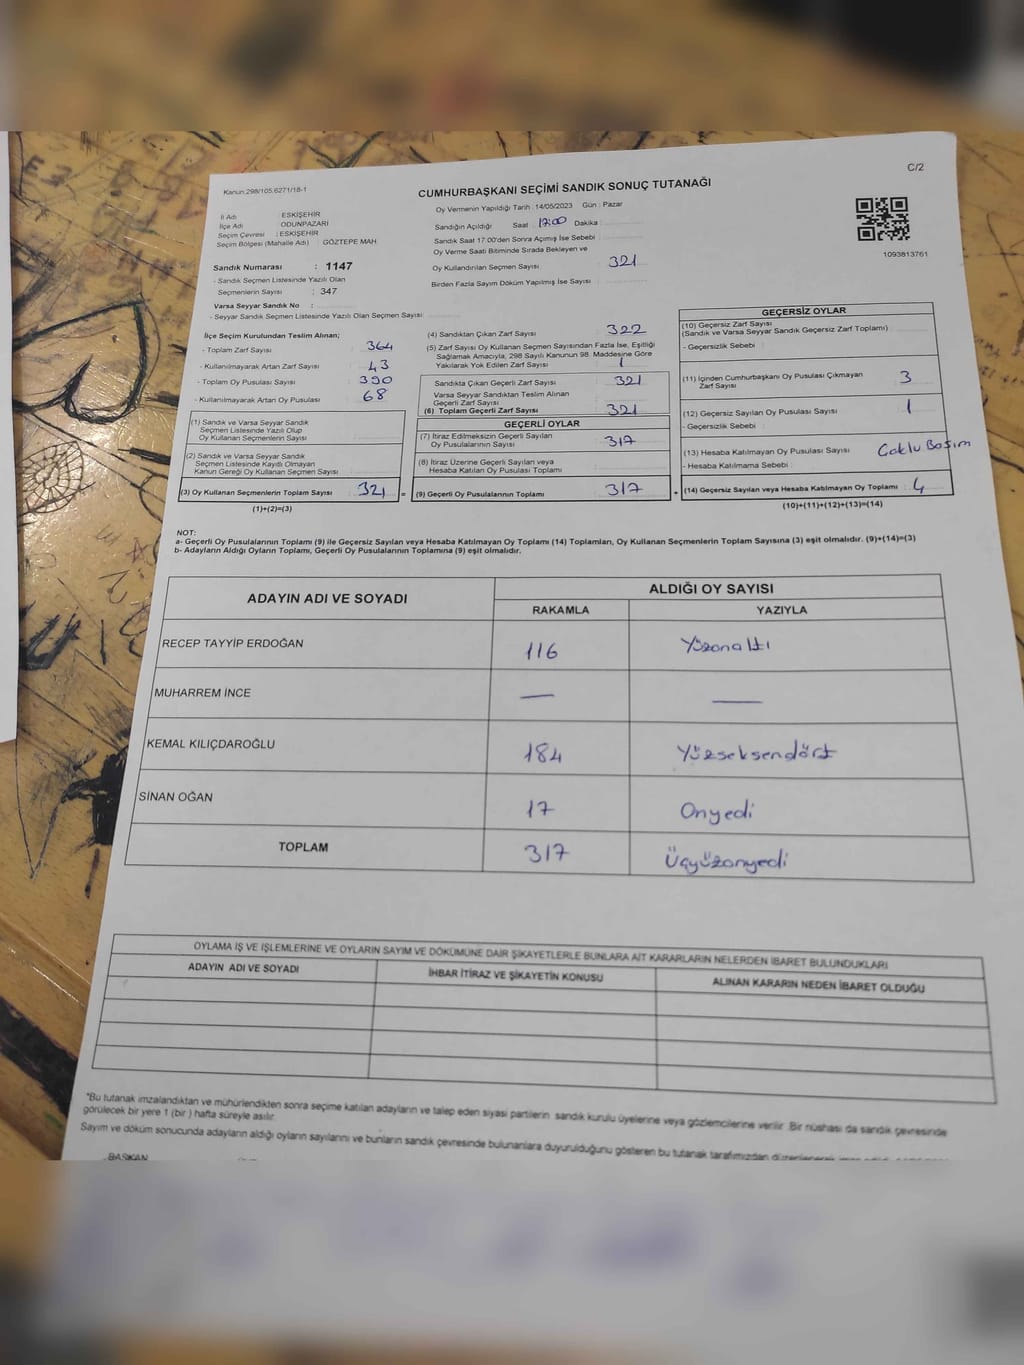 C/2
Kanun.298/105,6271/18-1
CUMHURBAŞKANI SEÇİMİ SANDIK SONUÇ TUTANAĞI
İl Adı : ESKİŞEHİR
İlçe Adı : ODUNPAZARI
Seçim Çevresi : ESKİŞEHİR
Seçim Bölgesi (Mahalle Adı) GÖZTEPE MAH.
Sandık Numarası : 1147
- Sandık Seçmen Listesinde Yazılı Olan
Seçmenlerin Sayısı : 347
Varsa Seyyar Sandık No :
- Seyyar Sandık Seçmen Listesinde Yazılı Olan Seçmen Sayısı:
Oy Vermenin Yapıldığı Tarih : 14/05/2023 Gün : Pazar
Sandığın Açıldığı Saat 17:00 Dakika :
Sandık Saat 17:00'den Sonra Açılmış İse Sebebi :
Oy Verme Saati Bitiminde Sırada Bekleyen ve
Oy Kullandırılan Seçmen Sayısı : 321
Birden Fazla Sayım Döküm Yapılmış İse Sayısı :
1093813761
İlçe Seçim Kurulundan Teslim Alınan;
- Toplam Zarf Sayısı : 364
- Kullanılmayarak Artan Zarf Sayısı : 43
- Toplam Oy Pusulası Sayısı : 390
- Kullanılmayarak Artan Oy Pusulası : 68
(1) Sandık ve Varsa Seyyar Sandık
Seçmen Listesinde Yazılı Olup
Oy Kullanan Seçmenlerin Sayısı :
(2) Sandık ve Varsa Seyyar Sandık
Seçmen Listesinde Kayıtlı Olmayan
Kanun Gereği Oy Kullanan Seçmen Sayısı :
(3) Oy Kullanan Seçmenlerin Toplam Sayısı : 321 =
(1)+(2)=(3)
(4) Sandıktan Çıkan Zarf Sayısı : 322
(5) Zarf Sayısı Oy Kullanan Seçmen Sayısından Fazla İse, Eşitliği
Sağlamak Amacıyla, 298 Sayılı Kanunun 98. Maddesine Göre
Yakılarak Yok Edilen Zarf Sayısı : 1
Sandıkta Çıkan Geçerli Zarf Sayısı : 321
Varsa Seyyar Sandıktan Teslim Alınan
Geçerli Zarf Sayısı :
(6) Toplam Geçerli Zarf Sayısı : 321
GEÇERLİ OYLAR
(7) İtiraz Edilmeksizin Geçerli Sayılan
Oy Pusulalarının Sayısı : 317
(8) İtiraz Üzerine Geçerli Sayılan veya
Hesaba Katılan Oy Pusulası Toplamı :
(9) Geçerli Oy Pusulalarının Toplamı : 317 +
GEÇERSİZ OYLAR
(10) Geçersiz Zarf Sayısı
(Sandık ve Varsa Seyyar Sandık Geçersiz Zarf Toplamı) :
- Geçersizlik Sebebi :
(11) İçinden Cumhurbaşkanı Oy Pusulası Çıkmayan
Zarf Sayısı : 3
(12) Geçersiz Sayılan Oy Pusulası Sayısı : 1
- Geçersizlik Sebebi :
(13) Hesaba Katılmayan Oy Pusulası Sayısı : Çoklu Basım
- Hesaba Katılmama Sebebi :
(14) Geçersiz Sayılan veya Hesaba Katılmayan Oy Toplamı : 4
(10)+(11)+(12)+(13)=(14)
NOT:
a- Geçerli Oy Pusulalarının Toplamı (9) ile Geçersiz Sayılan veya Hesaba Katılmayan Oy Toplamı (14) Toplamları, Oy Kullanan Seçmenlerin Toplam Sayısına (3) eşit olmalıdır. (9)+(14)=(3)
b- Adayların Aldığı Oyların Toplamı, Geçerli Oy Pusulalarının Toplamına (9) eşit olmalıdır.
ADAYIN ADI VE SOYADI ALDIĞI OY SAYISI
RAKAMLA YAZIYLA
RECEP TAYYİP ERDOĞAN 116 Yüzonaltı
MUHARREM İNCE — —
KEMAL KILIÇDAROĞLU 184 Yüzseksendört
SİNAN OĞAN 17 Onyedi
TOPLAM 317 Üçyüzonyedi
OYLAMA İŞ VE İŞLEMLERİNE VE OYLARIN SAYIM VE DÖKÜMÜNE DAİR ŞİKAYETLERLE BUNLARA AİT KARARLARIN NELERDEN İBARET BULUNDUKLARI
ADAYIN ADI VE SOYADI İHBAR İTİRAZ VE ŞİKAYETİN KONUSU ALINAN KARARIN NEDEN İBARET OLDUĞU
"Bu tutanak imzalandıktan ve mühürlendikten sonra seçime katılan adayların ve talep eden siyasi partilerin sandık kurulu üyelerine veya gözlemcilerine verilir. Bir nüshası da sandık çevresinde
görülecek bir yere 1 (bir) hafta süreyle asılır.
Sayım ve döküm sonucunda adayların aldığı oyların sayılarını ve bunların sandık çevresinde bulunanlara duyurulduğunu gösteren bu tutanak tarafımızdan
BAŞKAN